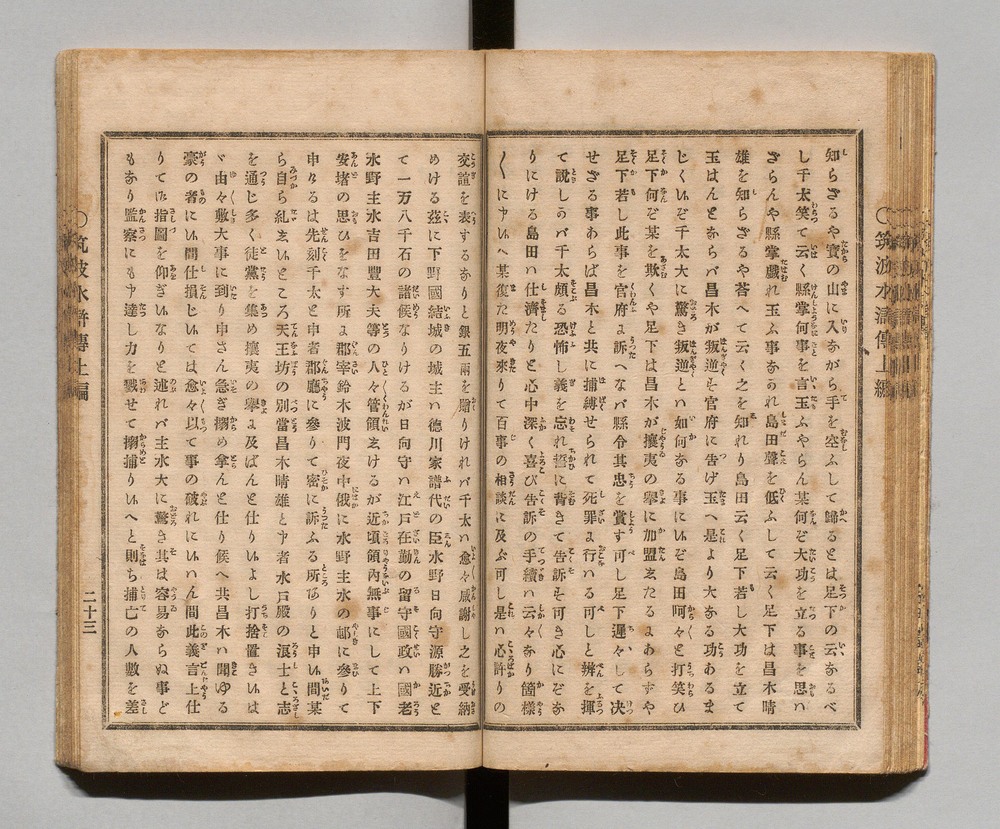 筑波水滸傳上編
知らざるや寳の山に入りあがら手を空ふして歸るとは足下の云あるべ
し千太笑て云く縣掌何事を言玉ふやらん某何ぞ大功を立る事を思ハ
ざらんや縣掌戯れ玉ふ事あられ島田聲を低ふして云く足下は昌木晴
雄を知らざるや荅へて云く之を知れり島田云く足下若し大功を立て
玉はんとあらバ昌木が叛逆を官府に告げ玉へ是より大ある功あるま
じくいぞ千太大に驚き叛逆とい如何ある事にいぞ島田呵々と打笑ひ
足下何ぞ某を欺くや足下は昌木が攘夷の擧に加盟ゑたるよあらずや
足下若し此事を官府ょ訴へなバ縣令其忠を賞す可し足下遲々して决
せざる事あらば昌木と共に捕縛せられて死罪ょ行ハる可しと辨を揮
て說しうバ千太頗る恐怖し義を忘れ誓に背きて告訴を可き心にぞあ
りにける島田ハ仕濟たりと心中深く喜び告訴の手續ハ云々あり箇樣
〱に〳〵へ某復た明夜來りて百事の相談に及ぶ可し是ハ心許りの
交誼を表するありと銀五兩を贈りけれバ千太ハ愈々感謝し之を受納
めける茲に下野國結城の城主ハ德川家譜代の臣水野日向守源勝近と
て一万八千石の諸候なりけるが日向守ハ江戸在勤の留守國政ハ國老
水野主水吉田豐大夫等の人々管領ゑけるが近頃領內無事にして上下
安堵の思ひをなす所ょ郡宰鈴木波門夜中俄に水野主水の邸に參りて
申けるは先刻千太と申者郡廳に參りて密に訴ふる所ありと申い間某
ら自ら糺ゑいところ天王坊の別當昌木晴雄と申者水戸殿の浪士と志
を通じ多く徒黨を集め攘夷の擧ょ及ばんと仕りいよし打捨置きいは
ヾ由々敷大事に到り申さん急ぎ搦め拿んと仕り候へ共昌木ハ聞ゆる
豪の者にい間仕損じいては愈々以て事の破れにいハん間此義言上仕
りては指圖を仰ぎいなりと述れバ主水大に驚き其は容易あらぬ事ど
もあり監察にも申達し力を戮せて搦捕りいへと則ち捕亡の人數を差
筑波水滸傳上編
二十三